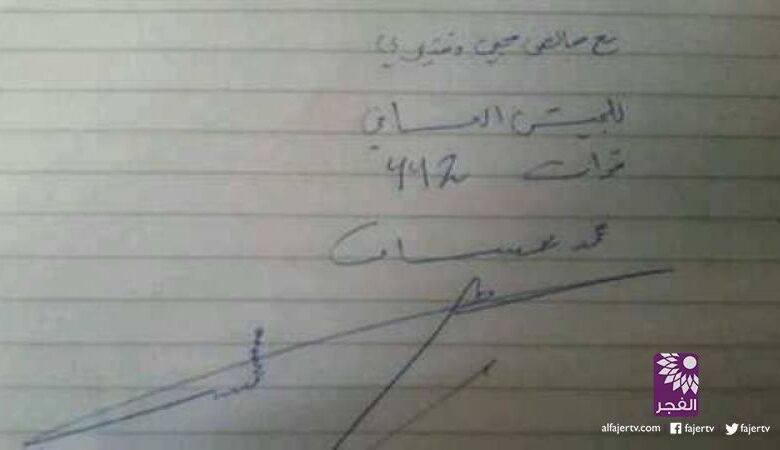 مع خالص حبي وتقديري
للجيش العساني
قوات ٤٤٢
محمد عساف
الفجر
alfajertv.com fajertv fajertv